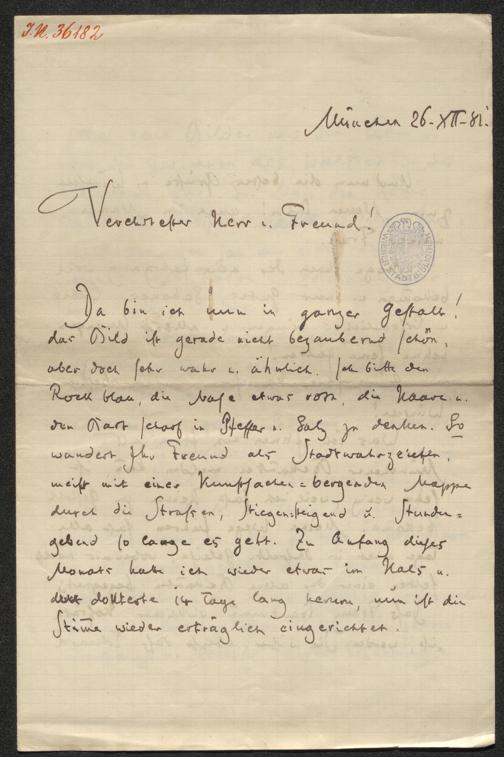 J.N. 36182
München 26-XII-81.
Verehrtester Herr u. Freund!
Da bin ich nun in ganzer Gestalt!
das Bild ist gerade nicht bezaubernd schön,
aber doch sehr wahr u. ähnlich. Ich bitte den
Rock blau, die Nase etwas roth, die Haare u.
den Bart scharf in Pfeffer u. Salz zu denken. So
wandert Ihr Freund als Stadtwahrzeichen,
meist mit einer Kunstsachen=bergenden Mappe
durch die Strassen, Stiegensteigend u. Stunden=
gebend so lange es geht. Zu Anfang dieses
Monats hatte ich wieder etwas im Hals u.
dokterte 14 Tage lang herum, nun ist die
Stimme wieder erträglich eingerichtet.